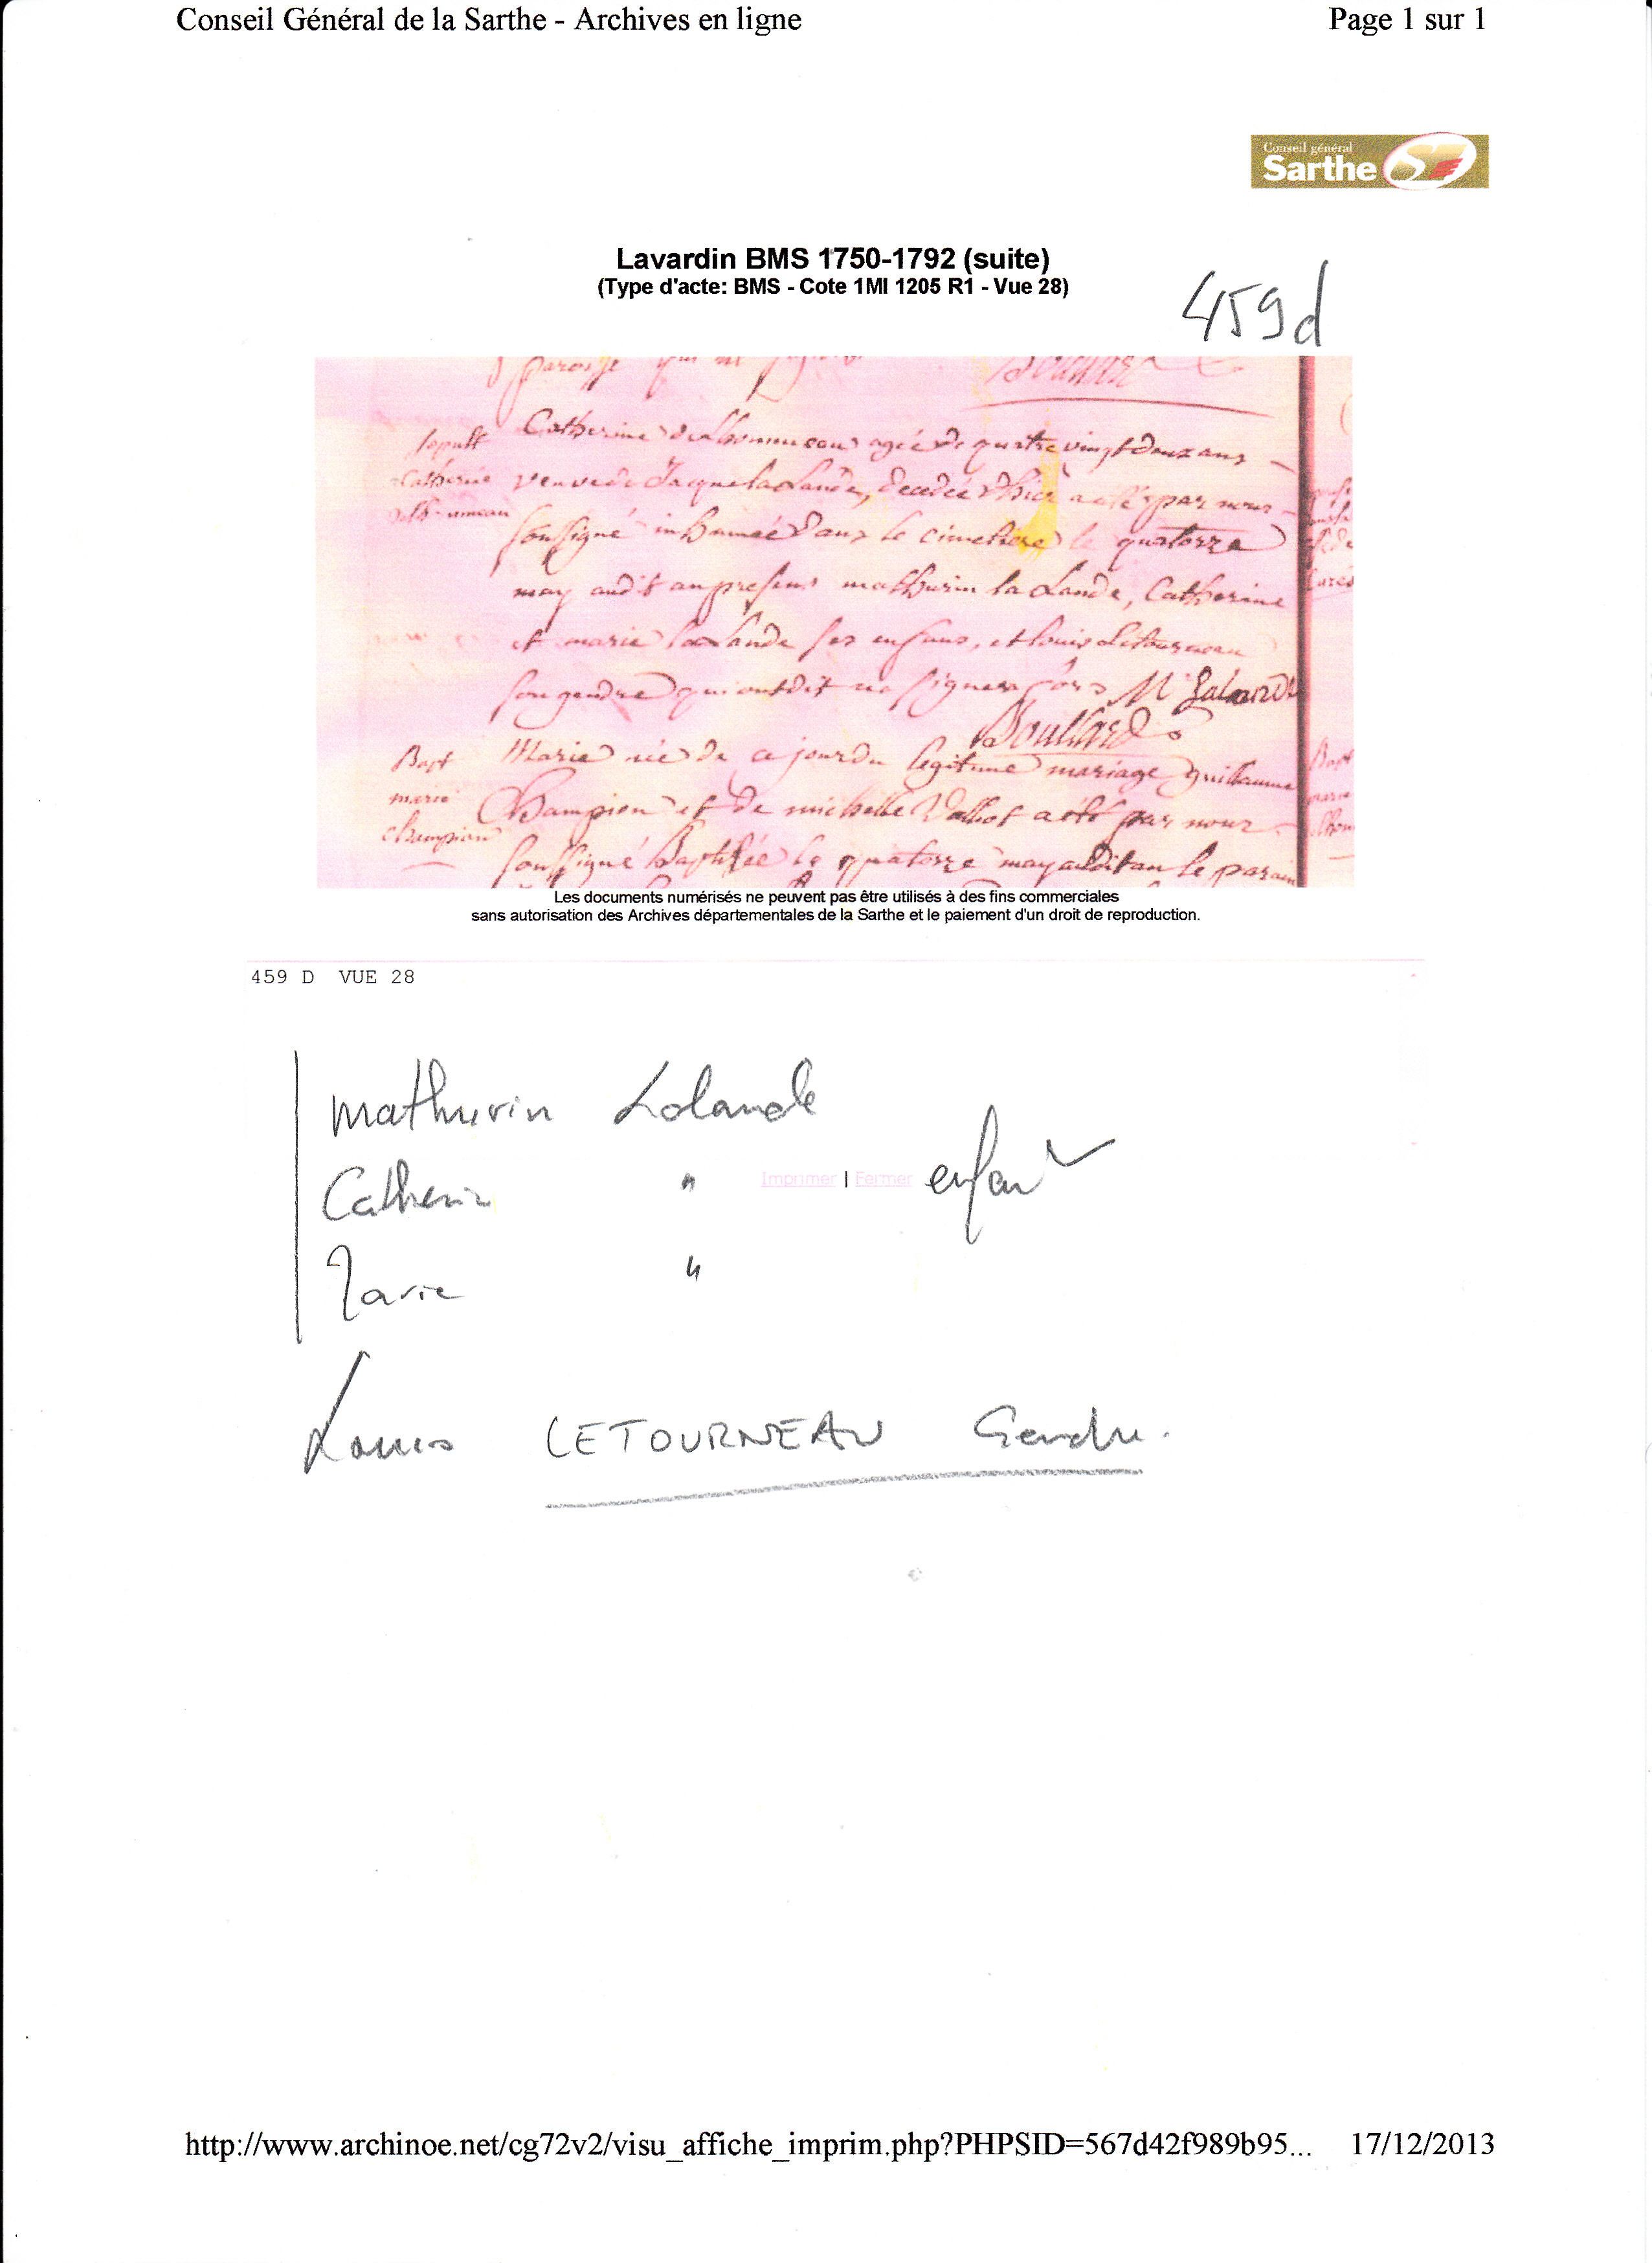 Conseil Général de la Sarthe - Archives en ligne Page 1 sur 1
Conseil général
Sarthe
Lavardin BMS 1750-1792 (suite)
(Type d'acte: BMS - Cote 1MI 1205 R1 - Vue 28)
459d
paroisse
sepult Catherine agée de quatre vingt deux ans
Catherine veuve de Jacque la Lande, decedée d'hier a été par nous
soussigné inhumée dans le cimetiere le quatorze
may audit an presens mathurin la Lande, Catherine
et marie la Lande ses enfans, et louis Letourneau
son gendre qui ont dit ne signer M Lalande
Boullard
Bapt Marie née de ce jour du legitime mariage guillaume
marie Champion et de michelle a été par nous
champion soussigné Baptisée le quatorze may audit an le parain
Les documents numérisés ne peuvent pas être utilisés à des fins commerciales
sans autorisation des Archives départementales de la Sarthe et le paiement d'un droit de reproduction.
459 D VUE 28
Mathurin Lalande
Catherine " Imprimer | Fermer enfant
Marie "
Louis LETOURNEAU Gendre.
http://www.archinoe.net/cg72v2/visu_affiche_imprim.php?PHPSID=567d42f989b95... 17/12/2013